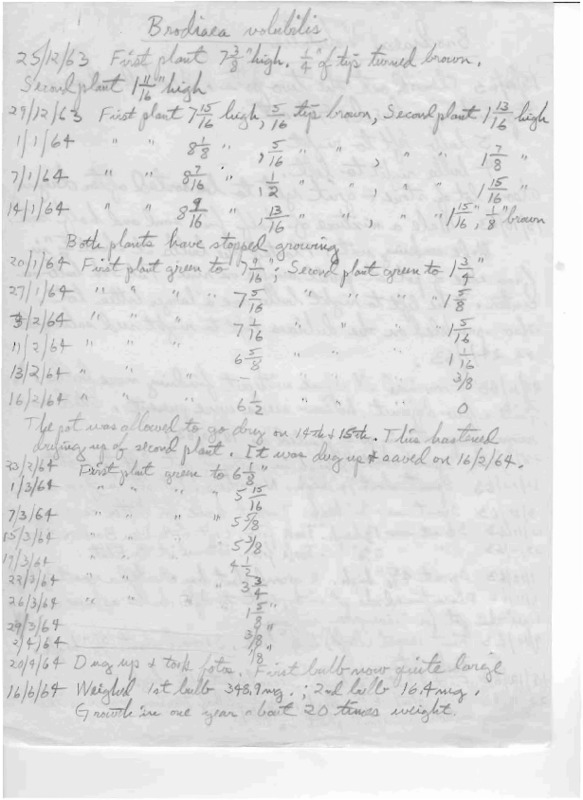 Brodiaea volubilis
25/12/63 First plant 7 3/8" high. 1/4" of tip turned brown.
Second plant 1 11/16" high
29/12/63 First plant 7 15/16 high, 5/16 tip brown, Second plant 1 13/16 high
1/1/64 " " 8 1/8 " , 5/16 " " , " " 1 7/8 "
7/1/64 " " 8 7/16 " , 1/2 " " , " " 1 15/16 "
14/1/64 " " 8 9/16 " , 13/16 " " , " " 1 15/16" 1/8" brown
Both plants have stopped growing
20/1/64 First plant green to 7 9/16"; Second plant green to 1 3/4"
27/1/64 " " " " 7 5/16 " " " " 1 5/8
3/2/64 " " " " 7 1/16 " " " " 1 5/16
11/2/64 6 5/8 1 1/16
13/2/64 " - " " " 3/8
16/2/64 " 6 1/2 " " " 0
The pot was allowed to go dry on 14th & 15th. This hastened
drying up of second plant. It was dug up & saved on 16/2/64.
23/2/64 First plant green to 6 1/8"
1/3/64 " " " " 5 15/16
7/3/64 " " " 5 5/8
15/3/64 5 3/8
17/3/64 4 1/2
22/3/64 " " " 3 3/4
26/3/64 " " " 1 5/8
29/3/64 3/8"
2/4/64 1/8"
20/4/64 Dug up & took fotos. First bulb now quite large
16/6/64 Weighed 1st bulb 348.9 mg.; 2nd bulb 16.4 mg.
Growth in one year about 20 times weight.